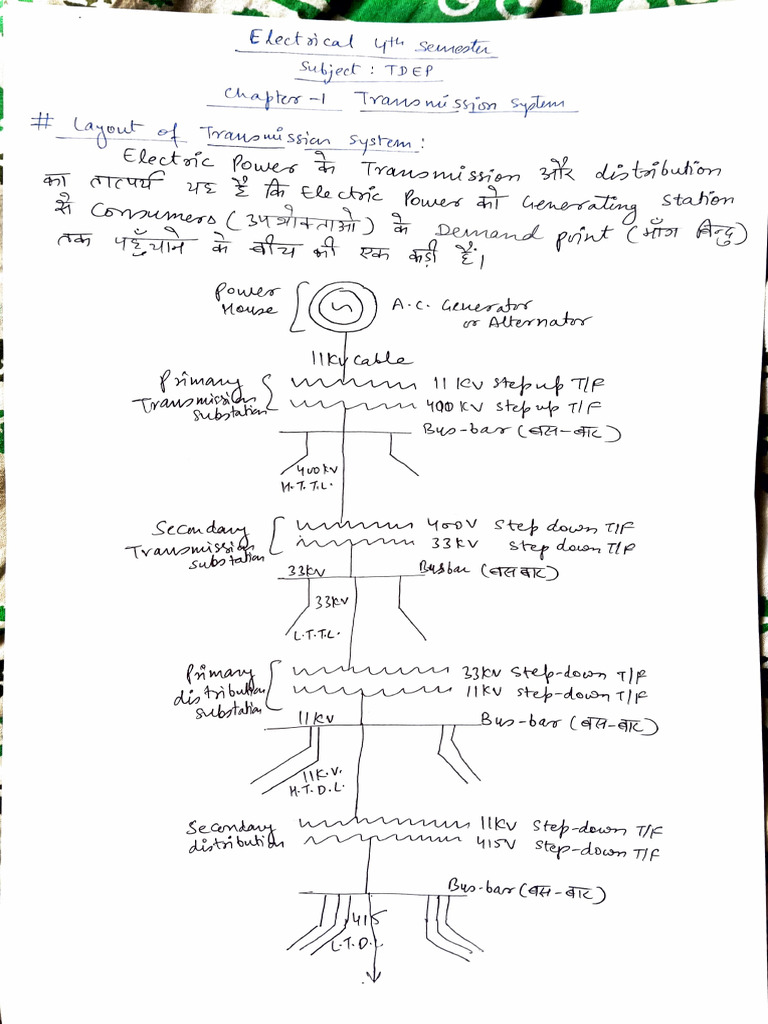 Electrical 4th Semester
Subject : TDEP
Chapter-1 Transmission System
# Layout of Transmission System :
Electric Power के Transmission और distribution
का तात्पर्य यह है कि Electric Power को Generating Station
से Consumers (उपभोक्ताओ) के Demand point (माँग बिन्दु)
तक पहुँचाने के बीच की एक कड़ी हैं।
Power House
A.C. Generator
or Alternator
11KV cable
Primary Transmission substation
11 KV step up T/F
400 KV step up T/F
Bus-bar (बस-बाट)
400KV
H.T.T.L.
Secondary Transmission substation
400V Step down T/F
33KV Step down T/F
33KV
Busbar (बसबाट)
33KV
L.T.T.L.
Primary distribution substation
33KV Step-down T/F
11KV step-down T/F
11KV
Bus-bar (बस-बाट)
11K.V.
H.T.D.L.
Secondary distribution
11KV Step-down T/F
415V Step-down T/F
Bus-bar (बस-बाट)
415
L.T.D.L.